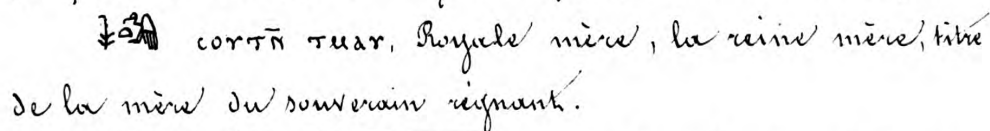 ⲥⲟⲩⲧⲛ̄ ⲧⲙⲁⲩ, Royale mère, la reine mère, titre
de la mère du souverain régnant.